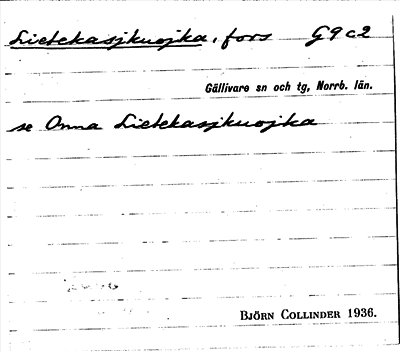 Lietekasjkuojka, fors G9c2
Gällivare sn och tg, Norrb. län.
se Onna Lietekasjkuojka
BJÖRN COLLINDER 1936.